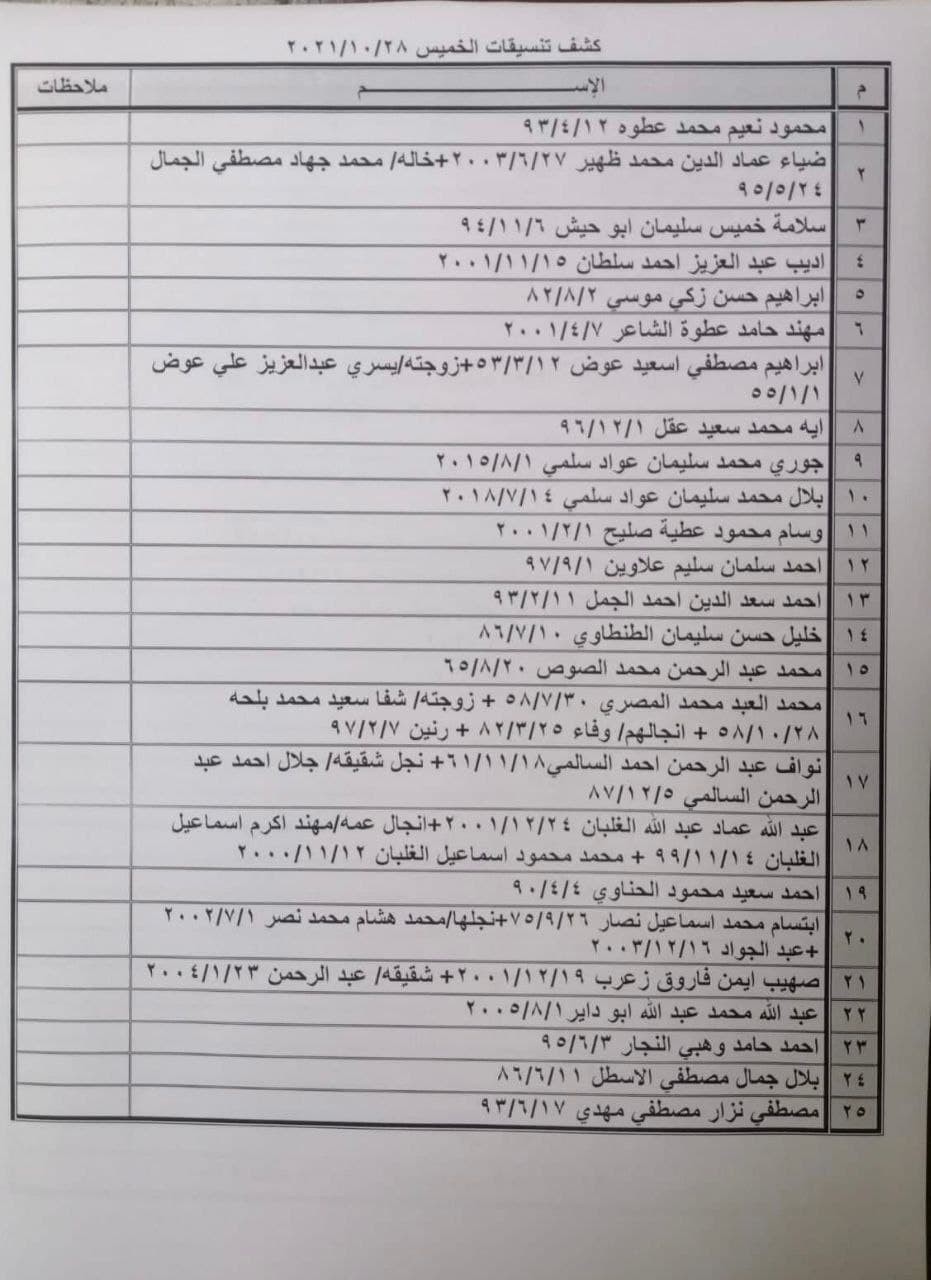 كشف تنسيقات الخميس ٢٠٢١/١٠/٢٨
م الإســـــــــــــــم ملاحظات
١ محمود نعيم محمد عطوه ٩٣/٤/١٢
٢ ضياء عماد الدين محمد ظهير ٢٠٠٣/٦/٢٧+خاله/ محمد جهاد مصطفي الجمال
٩٥/٥/٢٤
٣ سلامة خميس سليمان ابو حيش ٩٤/١١/٦
٤ اديب عبد العزيز احمد سلطان ٢٠٠١/١١/١٥
٥ ابراهيم حسن زكي موسي ٨٢/٨/٢
٦ مهند حامد عطوة الشاعر ٢٠٠١/٤/٧
٧ ابراهيم مصطفي اسعيد عوض ٥٣/٣/١٢+زوجته/يسري عبدالعزيز علي عوض
٥٥/١/١
٨ ايه محمد سعيد عقل ٩٦/١٢/١
٩ جوري محمد سليمان عواد سلمي ٢٠١٥/٨/١
١٠ بلال محمد سليمان عواد سلمي ٢٠١٨/٧/١٤
١١ وسام محمود عطية صليح ٢٠٠١/٢/١
١٢ احمد سلمان سليم علاوين ٩٧/٩/١
١٣ احمد سعد الدين احمد الجمل ٩٣/٢/١١
١٤ خليل حسن سليمان الطنطاوي ٨٦/٧/١٠
١٥ محمد عبد الرحمن محمد الصوص ٦٥/٨/٢٠
١٦ محمد العبد محمد المصري ٥٨/٧/٣٠ + زوجته/ شفا سعيد محمد بلحه
٥٨/١٠/٢٨ + انجالهم/ وفاء ٨٢/٣/٢٥ + رنين ٩٧/٢/٧
١٧ نواف عبد الرحمن احمد السالمي٦١/١١/١٨+ نجل شقيقه/ جلال احمد عبد
الرحمن السالمي ٨٧/١٢/٥
١٨ عبد الله عماد عبد الله الغلبان ٢٠٠١/١٢/٢٤+انجال عمه/مهند اكرم اسماعيل
الغلبان ٩٩/١١/١٤ + محمد محمود اسماعيل الغلبان ٢٠٠٠/١١/١٢
١٩ احمد سعيد محمود الحناوي ٩٠/٤/٤
٢٠ ابتسام محمد اسماعيل نصار ٧٥/٩/٢٦+نجلها/محمد هشام محمد نصر ٢٠٠٢/٧/١
+عبد الجواد ٢٠٠٣/١٢/١٦
٢١ صهيب ايمن فاروق زعرب ٢٠٠١/١٢/١٩+ شقيقه/ عبد الرحمن ٢٠٠٤/١/٢٣
٢٢ عبد الله محمد عبد الله ابو داير٢٠٠٥/٨/١
٢٣ احمد حامد وهبي النجار ٩٥/٦/٣
٢٤ بلال جمال مصطفي الاسطل ٨٦/٦/١١
٢٥ مصطفي نزار مصطفي مهدي ٩٣/٦/١٧